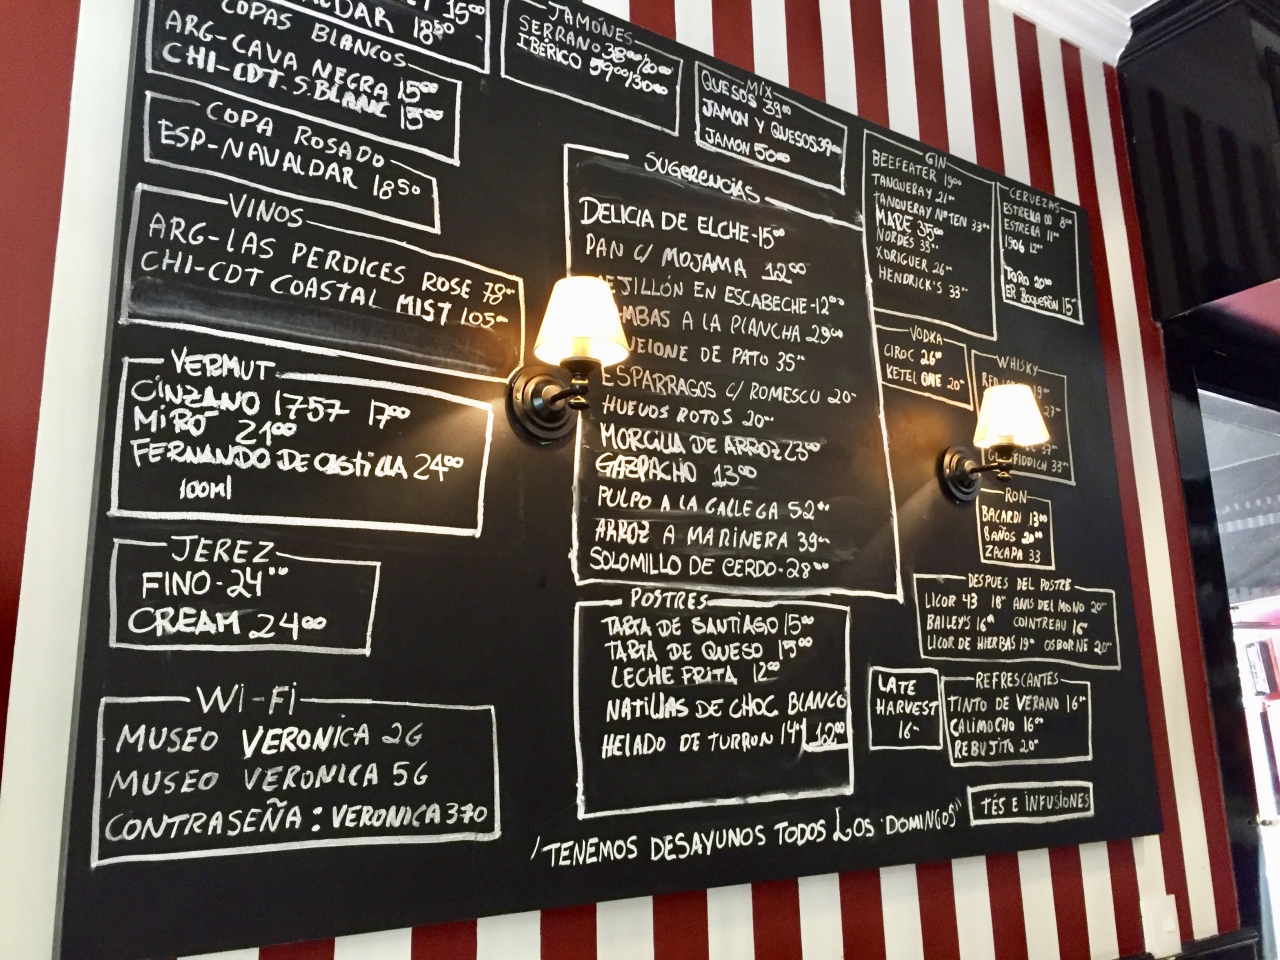 15⁰⁰
18⁵⁰
COPAS BLANCOS
ARG-CAVA NEGRA 15⁰⁰
CHI-CDT.S.BLANC 15⁰⁰
COPA ROSADO
ESP-NAVALDAR 18⁵⁰
VINOS
ARG-LAS PERDICES ROSE 78⁰⁰
CHI-CDT COASTAL MIST 105⁰⁰
VERMUT
CINZANO 1757 17⁰⁰
MIRÓ 21⁰⁰
FERNANDO DE CASTILLA 24⁰⁰
100ml
JEREZ
FINO-24⁰⁰
CREAM 24⁰⁰
WI-FI
MUSEO VERONICA 2G
MUSEO VERONICA 5G
CONTRASEÑA: VERONICA370
JAMONES
SERRANO 38⁰⁰/20⁰⁰
IBERICO 59⁰⁰/30⁰⁰
MIX
QUESOS 39⁰⁰
JAMON Y QUESOS 39⁰⁰
JAMON 50⁰⁰
SUGERENCIAS
DELICIA DE ELCHE-15⁰⁰
PAN C/ MOJAMA 12⁰⁰
EN ESCABECHE-12⁰⁰
A LA PLANCHA 29⁰⁰
DE PATO 35"
ESPARRAGOS C/ ROMESCU 20⁰⁰
HUEVOS ROTOS 20⁰⁰
MORCILLA DE ARROZ 23⁰⁰
GAZPACHO 13⁰⁰
PULPO A LA GALLEGA 52⁰⁰
ARROZ A MARINERA 39⁰⁰
SOLOMILLO DE CERDO-28⁰⁰
POSTRES
TARTA DE SANTIAGO 15⁰⁰
TARTA DE QUESO 15⁰⁰
LECHE FRITA 12⁰⁰
NATILLAS DE CHOC BLANCO
12⁰⁰
HELADO DE TURRON 14"
"TENEMOS DESAYUNOS TODOS LOS DOMINGOS"
GIN
BEEFEATER 19⁰⁰
TANQUERAY 21⁰⁰
TANQUERAY Nº TEN 33⁰⁰
MARE 35⁰⁰
NORDÉS 33⁰⁰
XORIGUER 26⁰⁰
HENDRICK'S 33⁰⁰
CERVEZAS
ESTRELLA 8⁰⁰
ESTRELLA 11⁰⁰
1906 12⁰⁰
TORO 20⁰⁰
ER BOQUERÓN 15⁰⁰
VODKA
CIROC 26⁰⁰
KETEL ONE 20⁰⁰
WHISKY
19⁰⁰
27⁰⁰
33⁰⁰
RON
BACARDI 13⁰⁰
8 AÑOS 20⁰⁰
ZACAPA 33
DESPUES DEL POSTRE
LICOR 43 18" ANIS DEL MONO 20"
BAILEY'S 16⁰⁰ COINTREAU 16"
LICOR DE HIERBAS 19⁰⁰ OSBORNE 20"
LATE
HARVEST
16-
REFRESCANTES
TINTO DE VERANO 16⁰⁰
CALIMOCHO 16⁰⁰
REBUJITO 20⁰⁰
TÉS E INFUSIONES